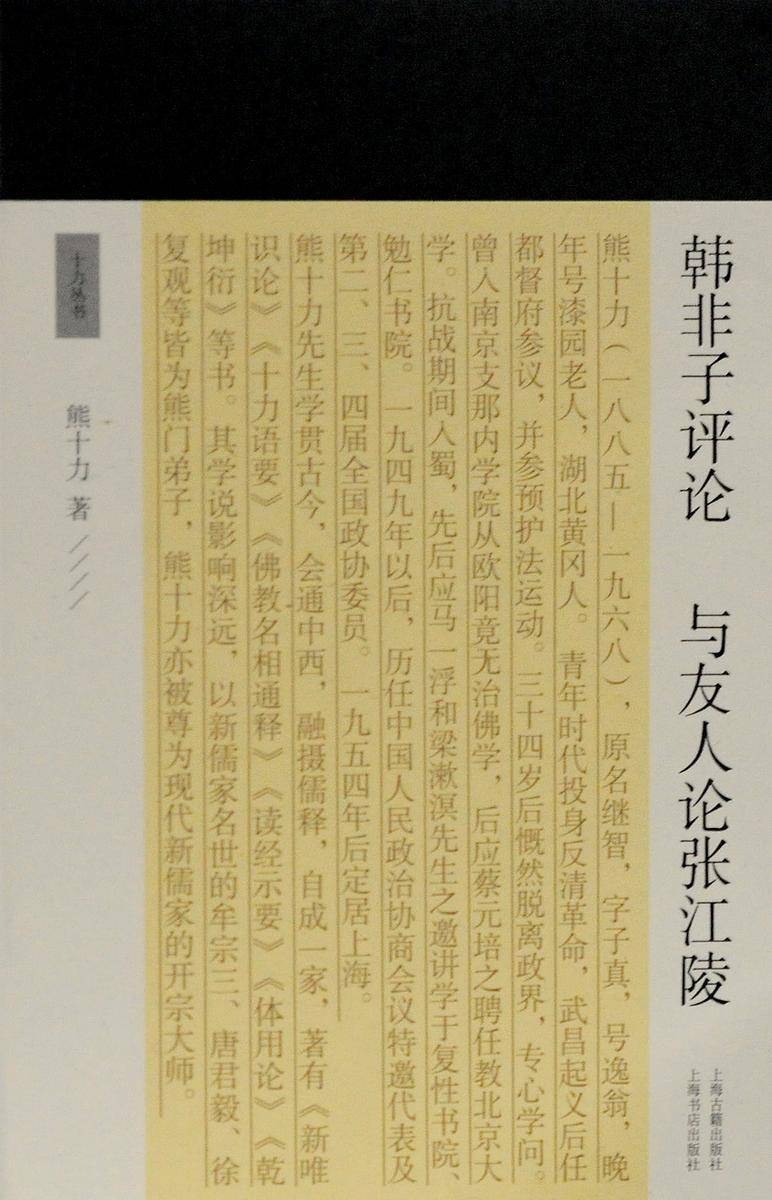 韩非子评论　与友人论张江陵
上海古籍出版社
上海书店出版社
熊十力（一八八五—一九六八），原名继智，字子真，号逸翁，晚
年号漆园老人，湖北黄冈人。青年时代投身反清革命，武昌起义后任
都督府参议，并参预护法运动。三十四岁后慨然脱离政界，专心学问。
曾入南京支那内学院从欧阳竟无治佛学，后应蔡元培之聘任教北京大
学。抗战期间入蜀，先后应马一浮和梁漱溟先生之邀讲学于复性书院、
勉仁书院。一九四九年以后，历任中国人民政治协商会议特邀代表及
第二、三、四届全国政协委员。一九五四年后定居上海。
熊十力先生学贯古今，会通中西，融摄儒释，自成一家，著有《新唯
识论》《十力语要》《佛教名相通释》《读经示要》《体用论》《乾
坤衍》等书。其学说影响深远，以新儒家名世的牟宗三、唐君毅、徐
复观等皆为熊门弟子，熊十力亦被尊为现代新儒家的开宗大师。
十力丛书
熊十力 著////